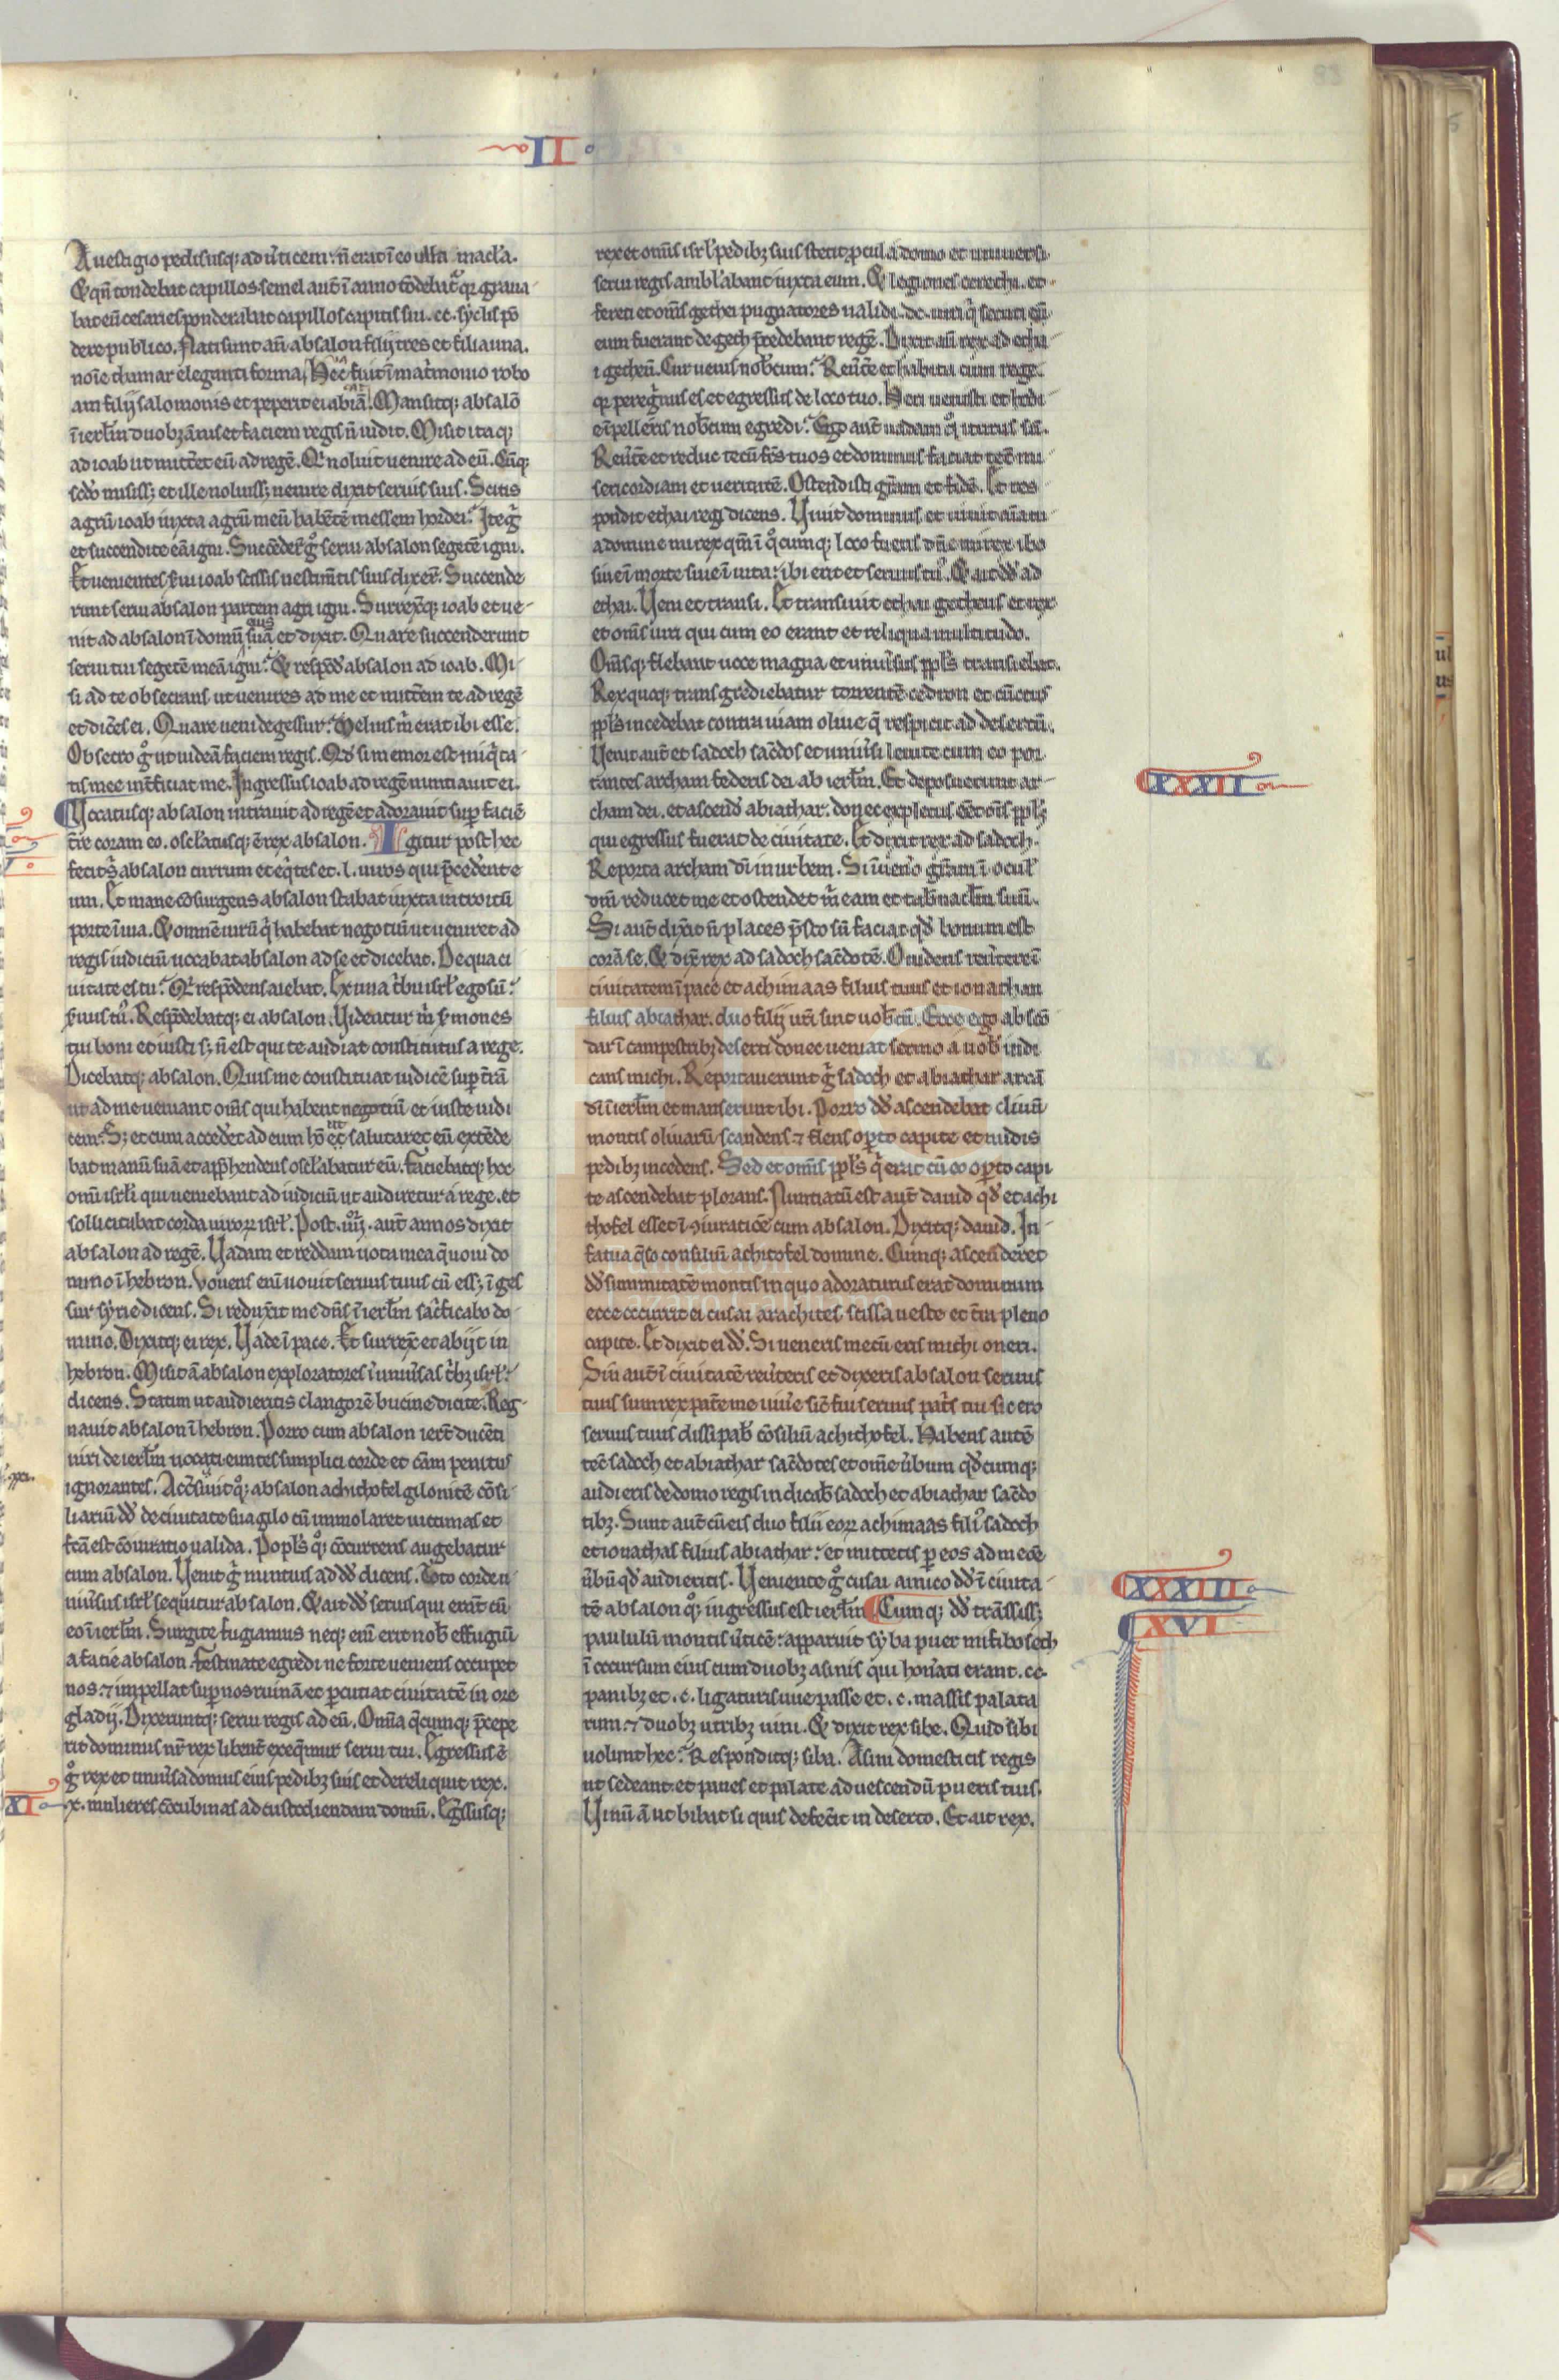 II
A uestigio pedis usq; ad ůticem: n̄ erat ī eo ulla macl̓a.
Et qn̄ tondebat capillos semel aut̄ ī anno tōdebat᷑ qꝛ graua
bat eū cesaries ponderabat capillos capitis sui .cc. syclis pō
dere publico. Nati sunt aū absalon filij tres et filia una.
noīe thamar eleganti forma. Hec fuit ī mat̓monio robo
am filij salomonis et peperit ei abiā. Mansitq; absalō
ī ierl̄m duobȝ ānis et faciem regis n̄ uidit. Misit itaq;
ad ioab ut mitt̓et eū ad regē. Qi noluit uenire ad eū. Cūq;
scd̓o misiss; et ille noluiss; uenire dixit seruis suis. Scitis
agrū ioab iuxta agrū meū habētē messem hordei: Ite gͦ
et succendite eā igni. Succēder̄t gͦ serui absalon segetē igni.
Et uenientes s̓ui ioab scissis uestim̄tis suis dixer̄. Succende
runt serui absalon partem agri igni. Surrexitq; ioab et ue
nit ad absalon ī domū suā et dixit. Quare succenderunt
serui tui segetē meā igni: Et respōd̓ absalon ad ioab. Mi
si ad te obsecrans ut uenires ad me et mitt̄em te ad regē
et dic̄es ei. Quare ueni de gessur: Melius m̓ erat ibi esse.
Obsecro gͦ ut uideā faciem regis. Qd̓ si memor est iniq̓ta
tis mee int̄ficiat me. Ingressus ioab ad regē nuntiauit ei.
Uocatusq; absalon intrauit ad regē et adorauit sup̱ faciē
t̄re coram eo. osclatusq; ē rex absalon. Igitur post hec
fecit s̓ absalon currum et eq̓tes et .l. uiros qui p̄cederent e
um. Et mane cōsurgens absalon stabat iuxta introitū
porte ī uia. Et omnē uirū q̓ habebat negotiū ut ueniret ad
regis iudiciū uocabat absalon ad se et dicebat. De qua ci
uitate es tu: Qi respōdens aiebat. Ex una t̓bu isrl̓ ego sū:
s̓uus tuꝰ. Respōdebatq; ei absalon. Uideatur m̓ s̓mones
tui boni et iusti s; n̄ est qui te audiat constitutus a rege.
Dicebatq; absalon. Quis me constituat iudicē sup̱ t̄rā
ut ad me ueniant om̄s qui habent negotiū et iuste iudi
cem: S; et cum acced̓et ad eum hō ut salutaret eū extēde
bat manū suā et app̱hendens oscl̓abatur eū. Faciebatq; hoc
omī isrl̓i qui ueniebant ad iudiciū ut audiretur a rege. et
sollicitabat corda uiroꝝ isrl̓. Post .iiij. aut̄ annos dixit
absalon ad regē. Uadam et reddam uota mea q̄ uoui do
mino ī hebron. Vouens enī uouit seruus tuus cū ess; ī ges
sur syrie dicens. Si redux̄it me dn̄s ī ierl̄m sac̓ficabo do
mino. Dixitq; ei rex. Uade ī pace. Et surrex̄ et abijt in
hebron. Misit ā absalon exploratores ī uniu̓sas t̓bȝ isrl̓:
dicens. Statim ut audieritis clangorē bucine dicite. Reg
nauit absalon ī hebron. Porro cum absalon ier̄t ducēti
uiri de ierl̄m uocati euntes simplici corde et cām penitus
ignorantes. Acc̄siuit q̊; absalon achithofel gilonitē cōsi
liariū dd̓ de ciuitate sua gilo cū immolaret uictimas et
fc̄a est cōiuratio ualida. Popl̓s q̊; cōcurrens augebatur
cum absalon. Uenit gͦ nuntius ad dd̓ dicens. Toto corde u
niu̓sus isrl̓ seq̄uitur absalon. Et ait dd̓ seruis qui erāt cū
eo ī ierl̄m. Surgite fugiamus neq; enī erit nob̄ effugiū
a facie absalon. Festinate egredi ne forte ueniens occupet
nos. ⁊ impellat sup̱ nos ruinā et ꝑcutiat ciuitatē in ore
gladij. Dixeruntq; serui regis ad eū. Omīa q̄cumq; p̄cepe
rit dominus nr̄ rex libent̄ exeq̄mur serui tui. Egressus ē
gͦ rex et uniu̓sa domus eius pedibȝ suis et dereliquit rex.
.x. mulieres cōcubinas ad custodiendam domū. Eg̓ssusq;
XI
rex et om̄is isrl̓ pedibȝ suis stetit ꝓcul a domo et uniuersi
serui regis ambl̓abant iuxta eum. Et legiones cerethi. et
fereti et om̄s gethei pugnatores ualidi .dc. uiri q̓ secuti
eum fuerant de geth p̄cedebant regē. Dixit aū rex ad ethai
i getheū. Cur uenis nob̄cum: Reu̓te et habita cum rege.
qꝛ peregͥnus es et egressus de loco tuo. Heri uenisti et hodi
e īpelleris nob̄cum egredi: Ego aut̄ uadam qͦ iturus sū.
Reu̓te et reduc tecū fr̄s tuos et dominus faciat tec̄ mi
sericordiam et ueritatē. Ostendisti gr̄am et fidē. Et res
pondit ethai regi dicens. Uiuit dominus et uiuit
dominus rex qm̄ ī q̊cumq; loco fueris dn̄e mi rex ibo
siue ī morte siue ī uita: ibi erit et seruus tuꝰ. Et ait dd̓ ad
ethai. Ueni et transi. Et transiuit ethai getheus et rex
et om̄s uiri qui cum eo erant et reliqua multitudo.
Om̄sq; flebant uoce magna et uniu̓sus ppl̓s transiebat.
Rex quoq; transgrediebatur torrentē cedron et cūctus
ppl̓s incedebat contra uiam oliue q̄ respicit ad desertū.
Uenit aut̄ et sadoch sac̄dos et uniu̓si leuite cum eo por
tantes archam federis dei ab ierl̄m. Et deposuerunt ar
cham dei. et ascend̓ abiathar. donec expletus ēet om̄s ppl̓s
qui egressus fuerat de ciuitate. Et dixit rex ad sadoch.
Reporta archam dn̄i in urbem. Si īuen̓o gr̄am ī ocul̓
dn̄i reducet me et ostendet m̓ eam et tab̄naclm̄ suū.
Si aut̄ dix̄it n̄ places p̄sto sū faciat qd̓ bonum est
corā se. Et dix̄ rex ad sadoch sac̄dotē. O uidens reu̓tere ī
ciuitatem ī pace et achimaas filius tuus et ionathan
filius abiathar. duo filij uri sint uob̄cū. Ecce ego absco
dar ī campestribȝ deserti donec ueniat sermo a uob̄ indi
cans michi. Reportauerunt gͦ sadoch et abiathar arcā
dī ī ierl̄m et manserunt ibi. Porro dd̓ ascendebat cliuū
montis oliuarū scandens ⁊ flens oꝑto capite et nudis
pedibȝ incedens. Sed et om̄is ppl̓s q̓ erat cū eo oꝑto capi
te ascendebat plorans. Nuntiatū est aut̄ dauid qd̓ et achi
thofel esset ī ꝯiuratiōe cum absalon. Dixitq; dauid. In
fatua q̄so consiliū achitofel domine. Cumq; ascenderet
dd̓ summitatē montis in quo adoraturus erat dominum
ecce occurrit ei cusai arachites. scissa ueste et t̄ra pleno
capite. Et dixit ei dd̓. Si ueneris mecū eris michi oneri.
Sin aut̄ ī ciuitatē reu̓teris et dixeris absalon seruus
tuus sum rex pat̄e me uiu̓e sic̄ fui seruus pat̓s tui sic ero
seruus tuus dissipab̄ cōsiliū achithofel. Habens autē
tec̄ sadoch et abiathar sac̄dotes et om̄e u̓bum qd̓cumq;
audieris de domo regis indicab̄ sadoch et abiathar sac̄do
tibȝ. Sunt aut̄ cū eis duo filii eoꝝ achimaas filiꝰ sadoch
et ionathas filius abiathar: et mittetis ꝑ eos ad me ōe
u̓bū qd̓ audieritis. Ueniente gͦ cusai amico dd̓ ī ciuita
tē absalon q̊; ingressus est ierl̄m Cumq; dd̓ trāsiss;
paululū montis u̓ticē: apparuit syba puer mifibosech
ī occursum eius cum duobȝ asinis qui hon̓ati erant .cc.
panibȝ et .c. ligaturis uue passe et .c. massis palata
rum. ⁊ duobȝ utribȝ uini. Et dixit rex sibe. Quid sibi
uolunt hec: Responditq; siba. Asini domesticis regis
ut sedeant. et panes et palate ad uescendū pueris tuis.
Uinū ā ut bibat si quis defec̄it in deserto. Et ait rex.
XXXII
XXXIII
XVI